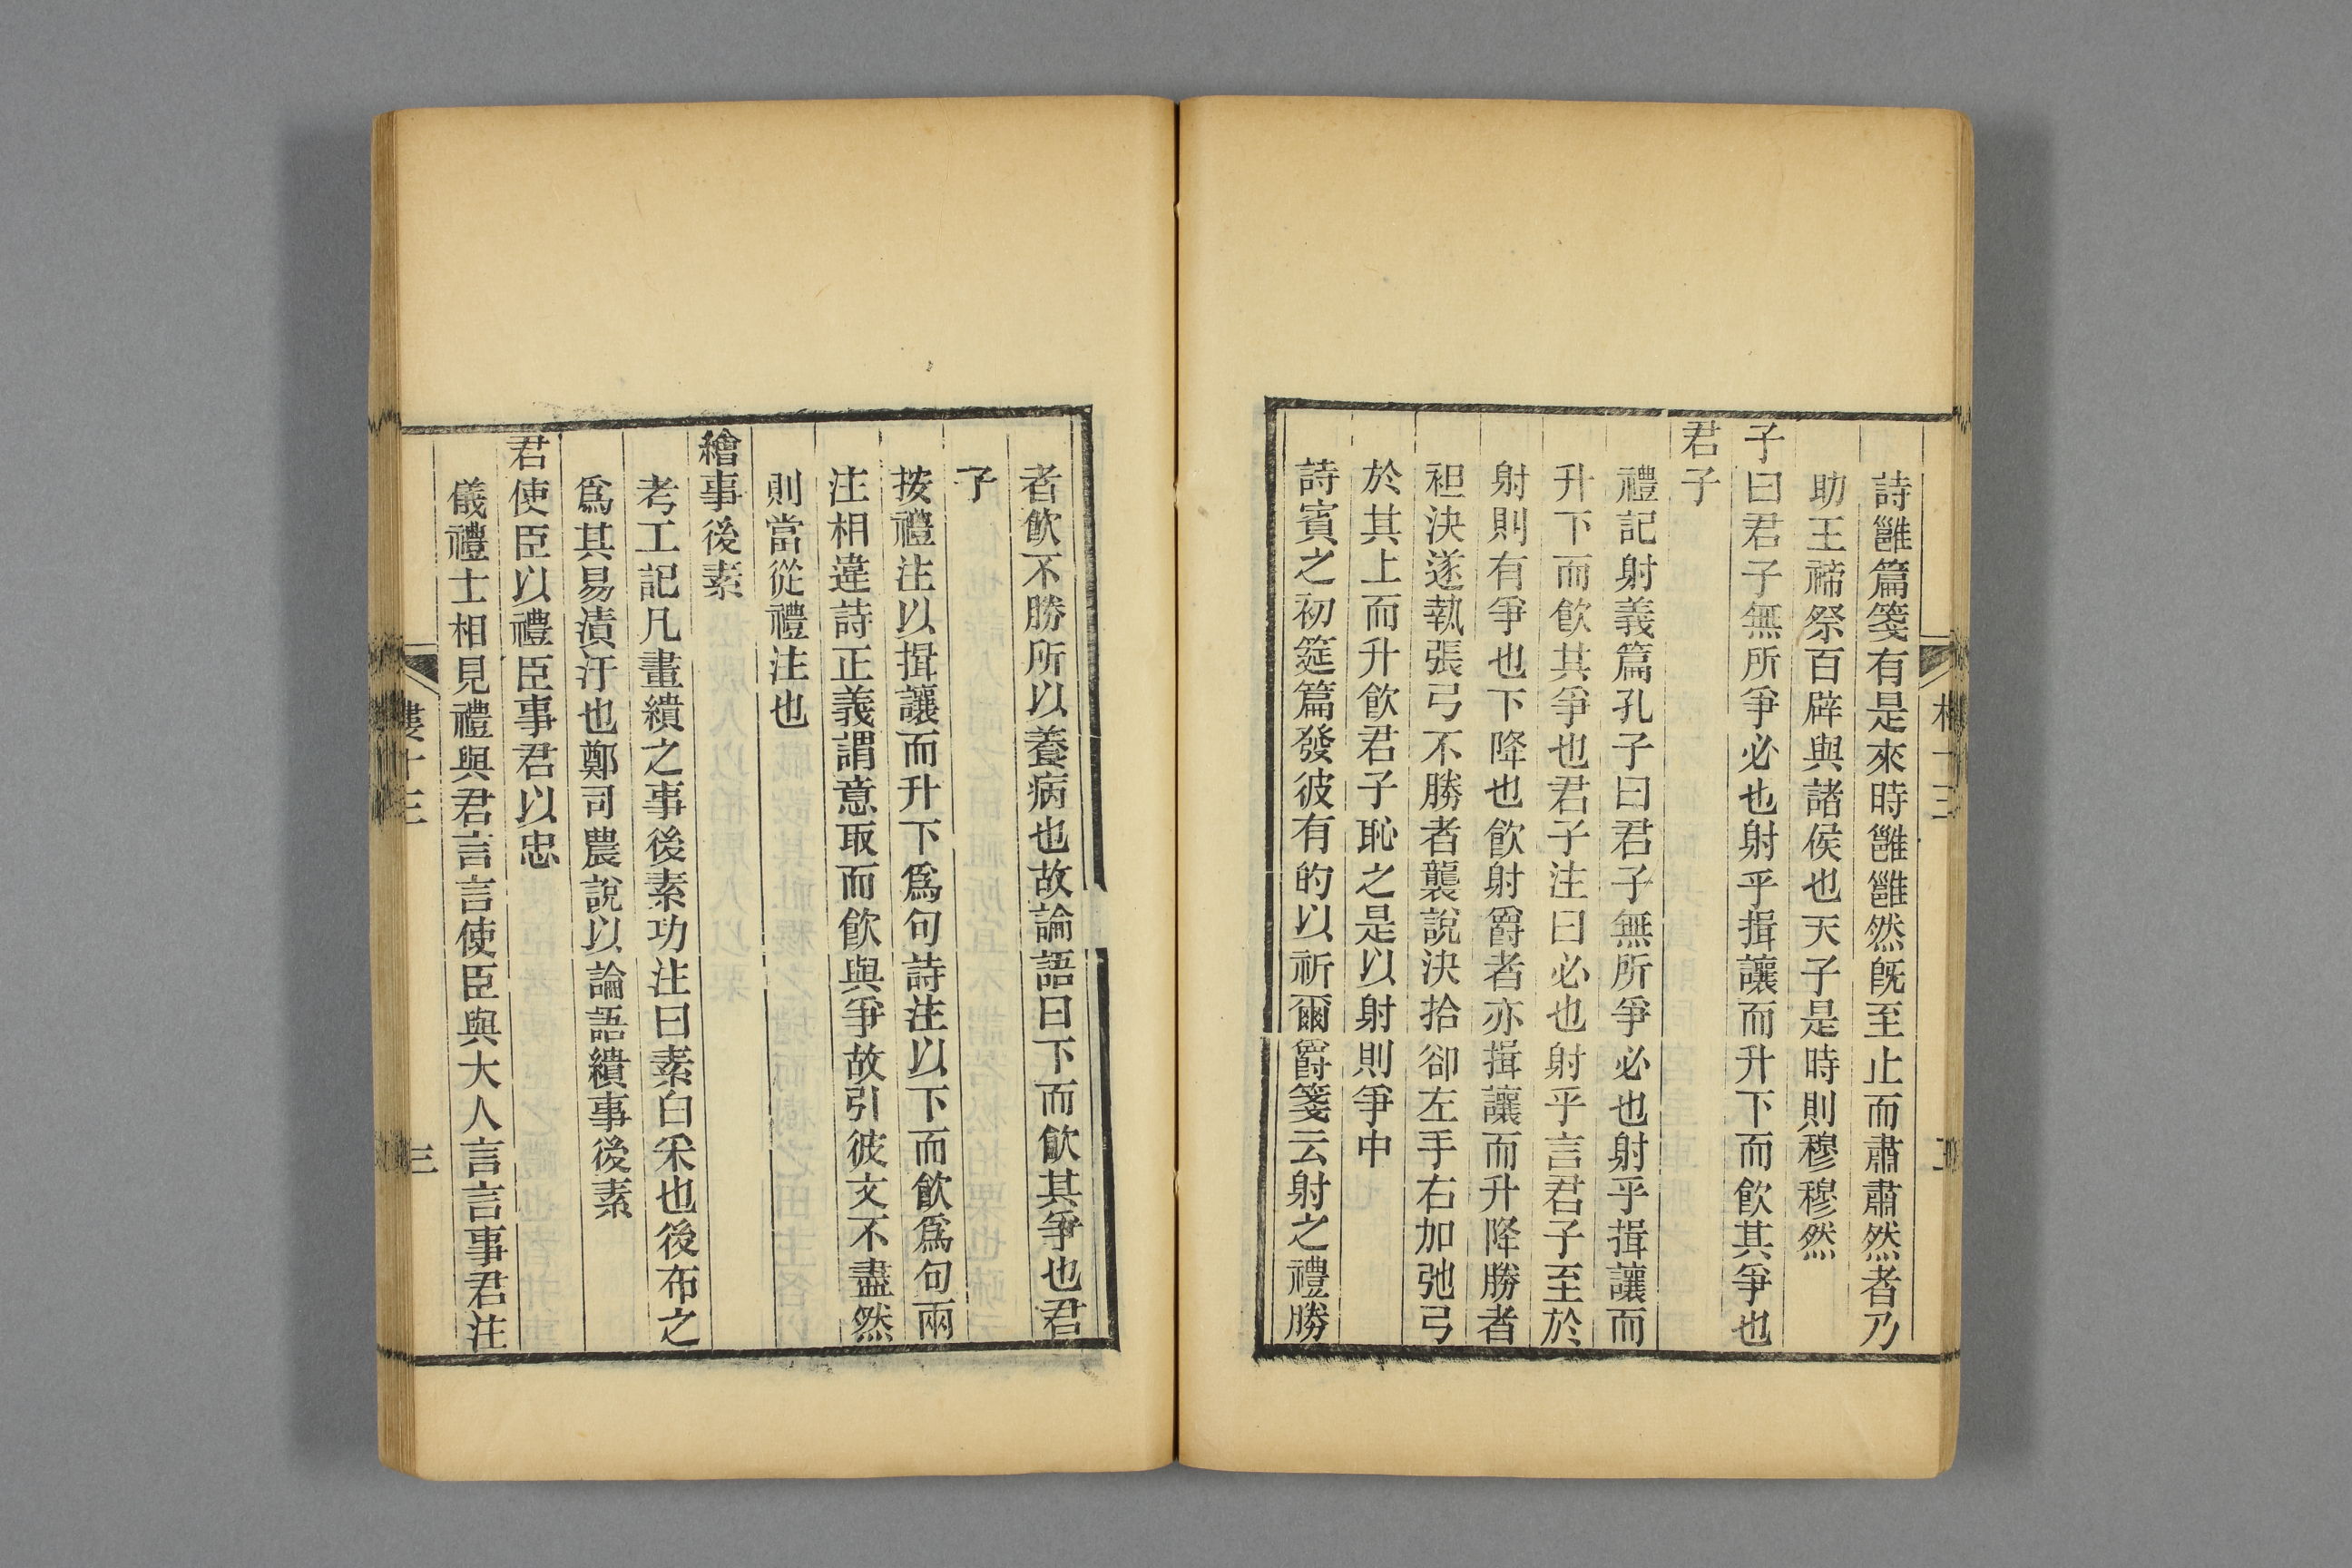 詩雝篇箋有是來時雝雝然旣至止而肅肅然者乃
助王禘祭百辟與諸侯也天子是時則穆穆然
子曰君子無所爭必也射乎揖讓而升下而飮其爭也
君子
禮記射義篇孔子曰君子無所爭必也射乎揖讓而
升下而飮其爭也君子注曰必也射乎言君子至於
射則有爭也下降也飮射爵者亦揖讓而升降勝者
袒決遂執張弓不勝者襲說決拾卻左手右加弛弓
於其上而升飮君子恥之是以射則爭中
詩賓之初筵篇發彼有的以祈爾爵箋云射之禮勝
者飮不勝所以養病也故論語曰下而飮其爭也君
子
按禮注以揖讓而升下爲句詩注以下而飮爲句兩
注相違詩正義謂意取而飮與爭故引彼文不盡然
則當從禮注也
繪事後素
考工記凡畫繢之事後素功注曰素白采也後布之
爲其易漬汙也鄭司農說以論語繢事後素
君使臣以禮臣事君以忠
儀禮士相見禮與君言言使臣與大人言言事君注
樓十三
三